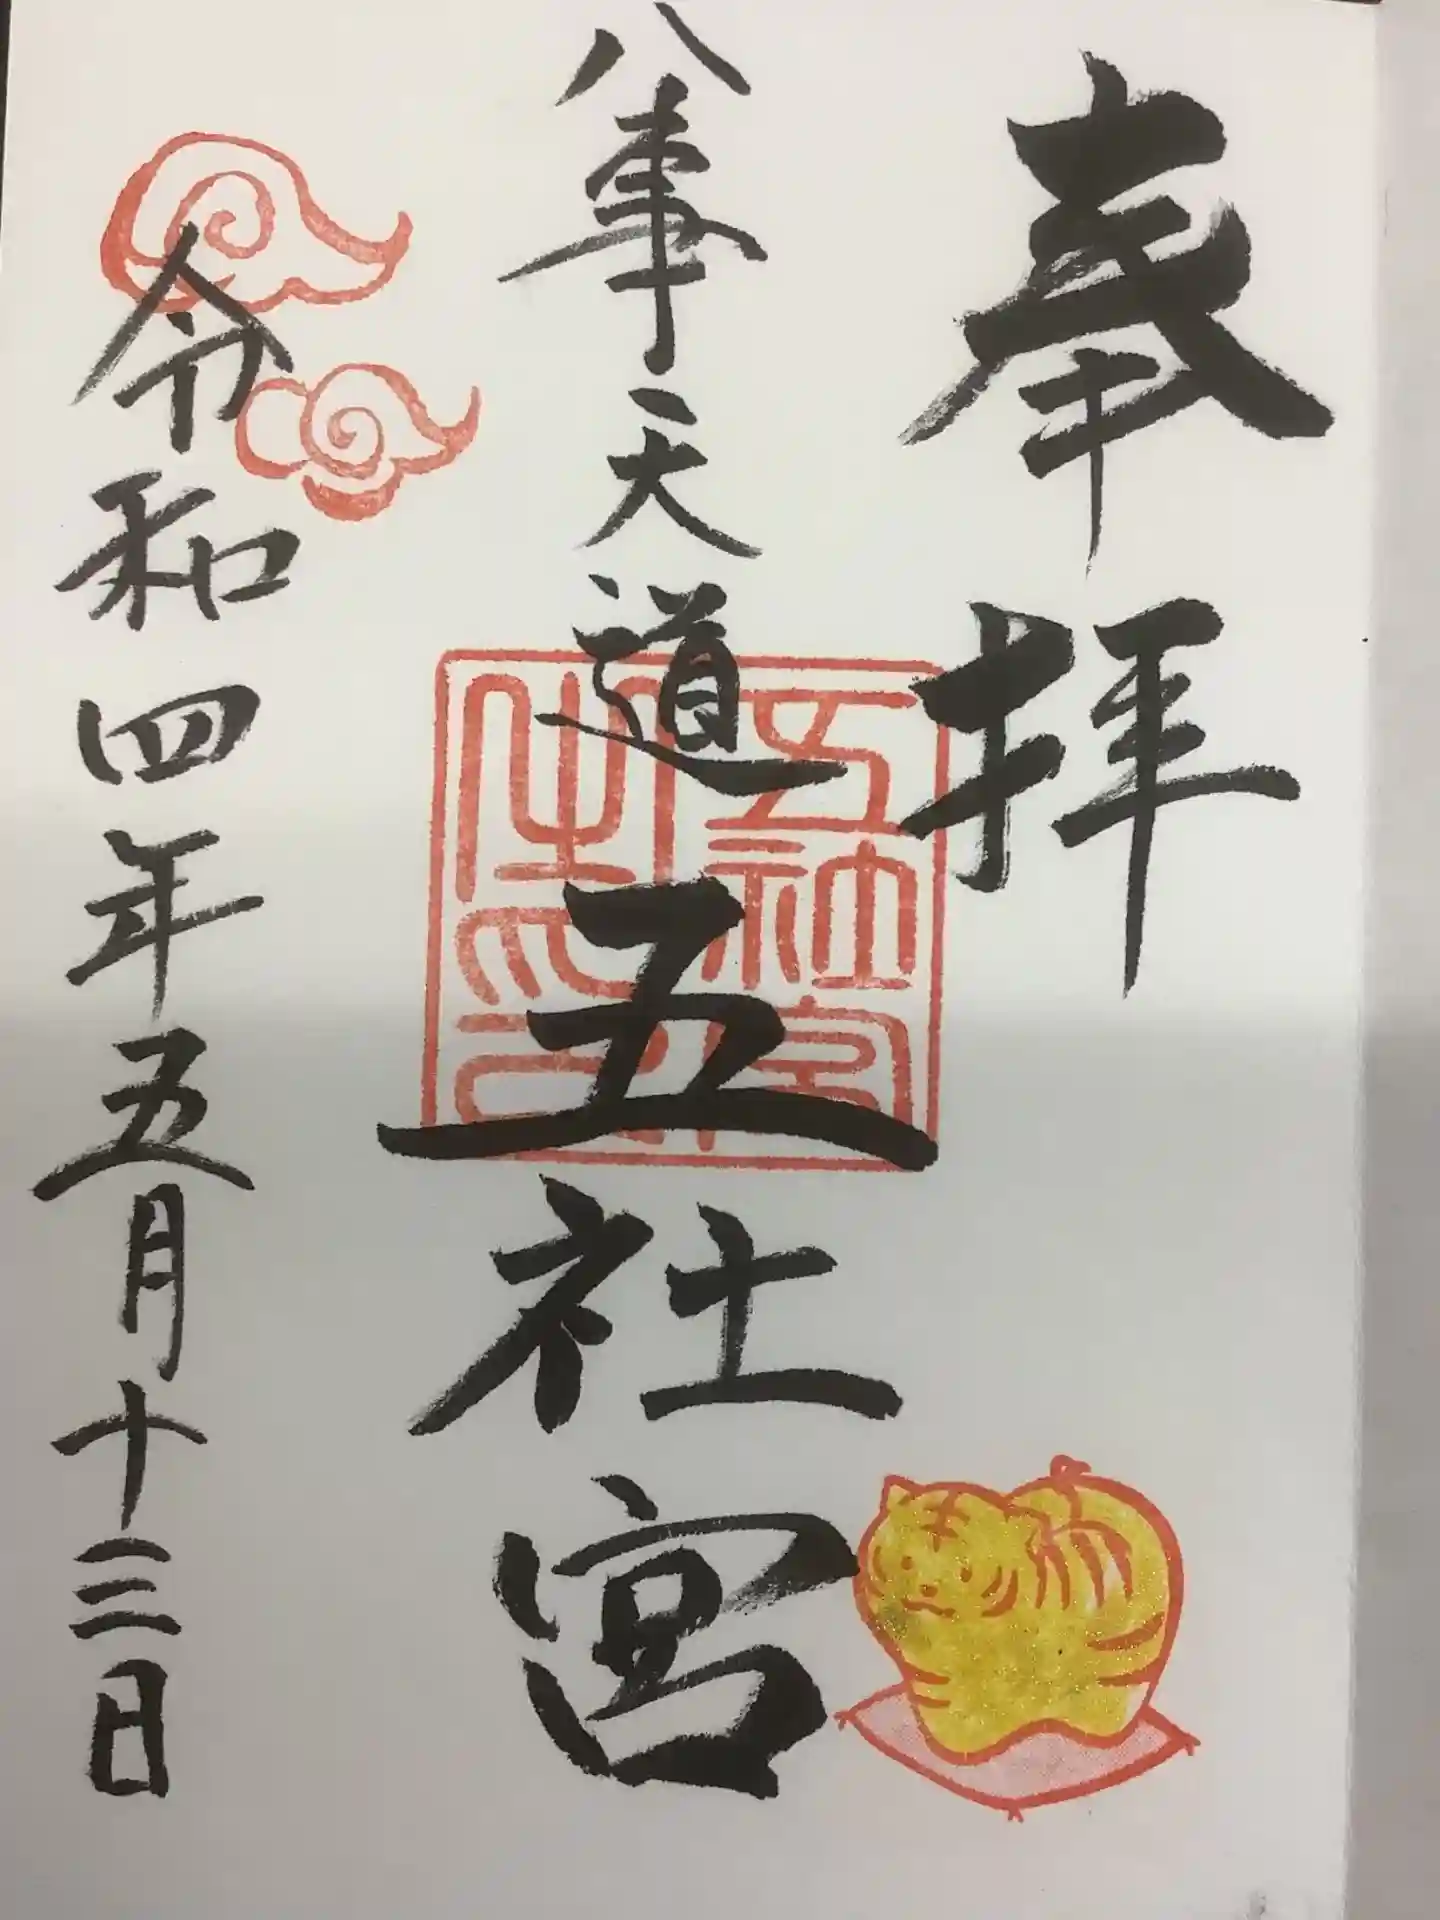 奉拝
八事天道
五社宮
五社宮之印
令和四年五月十三日